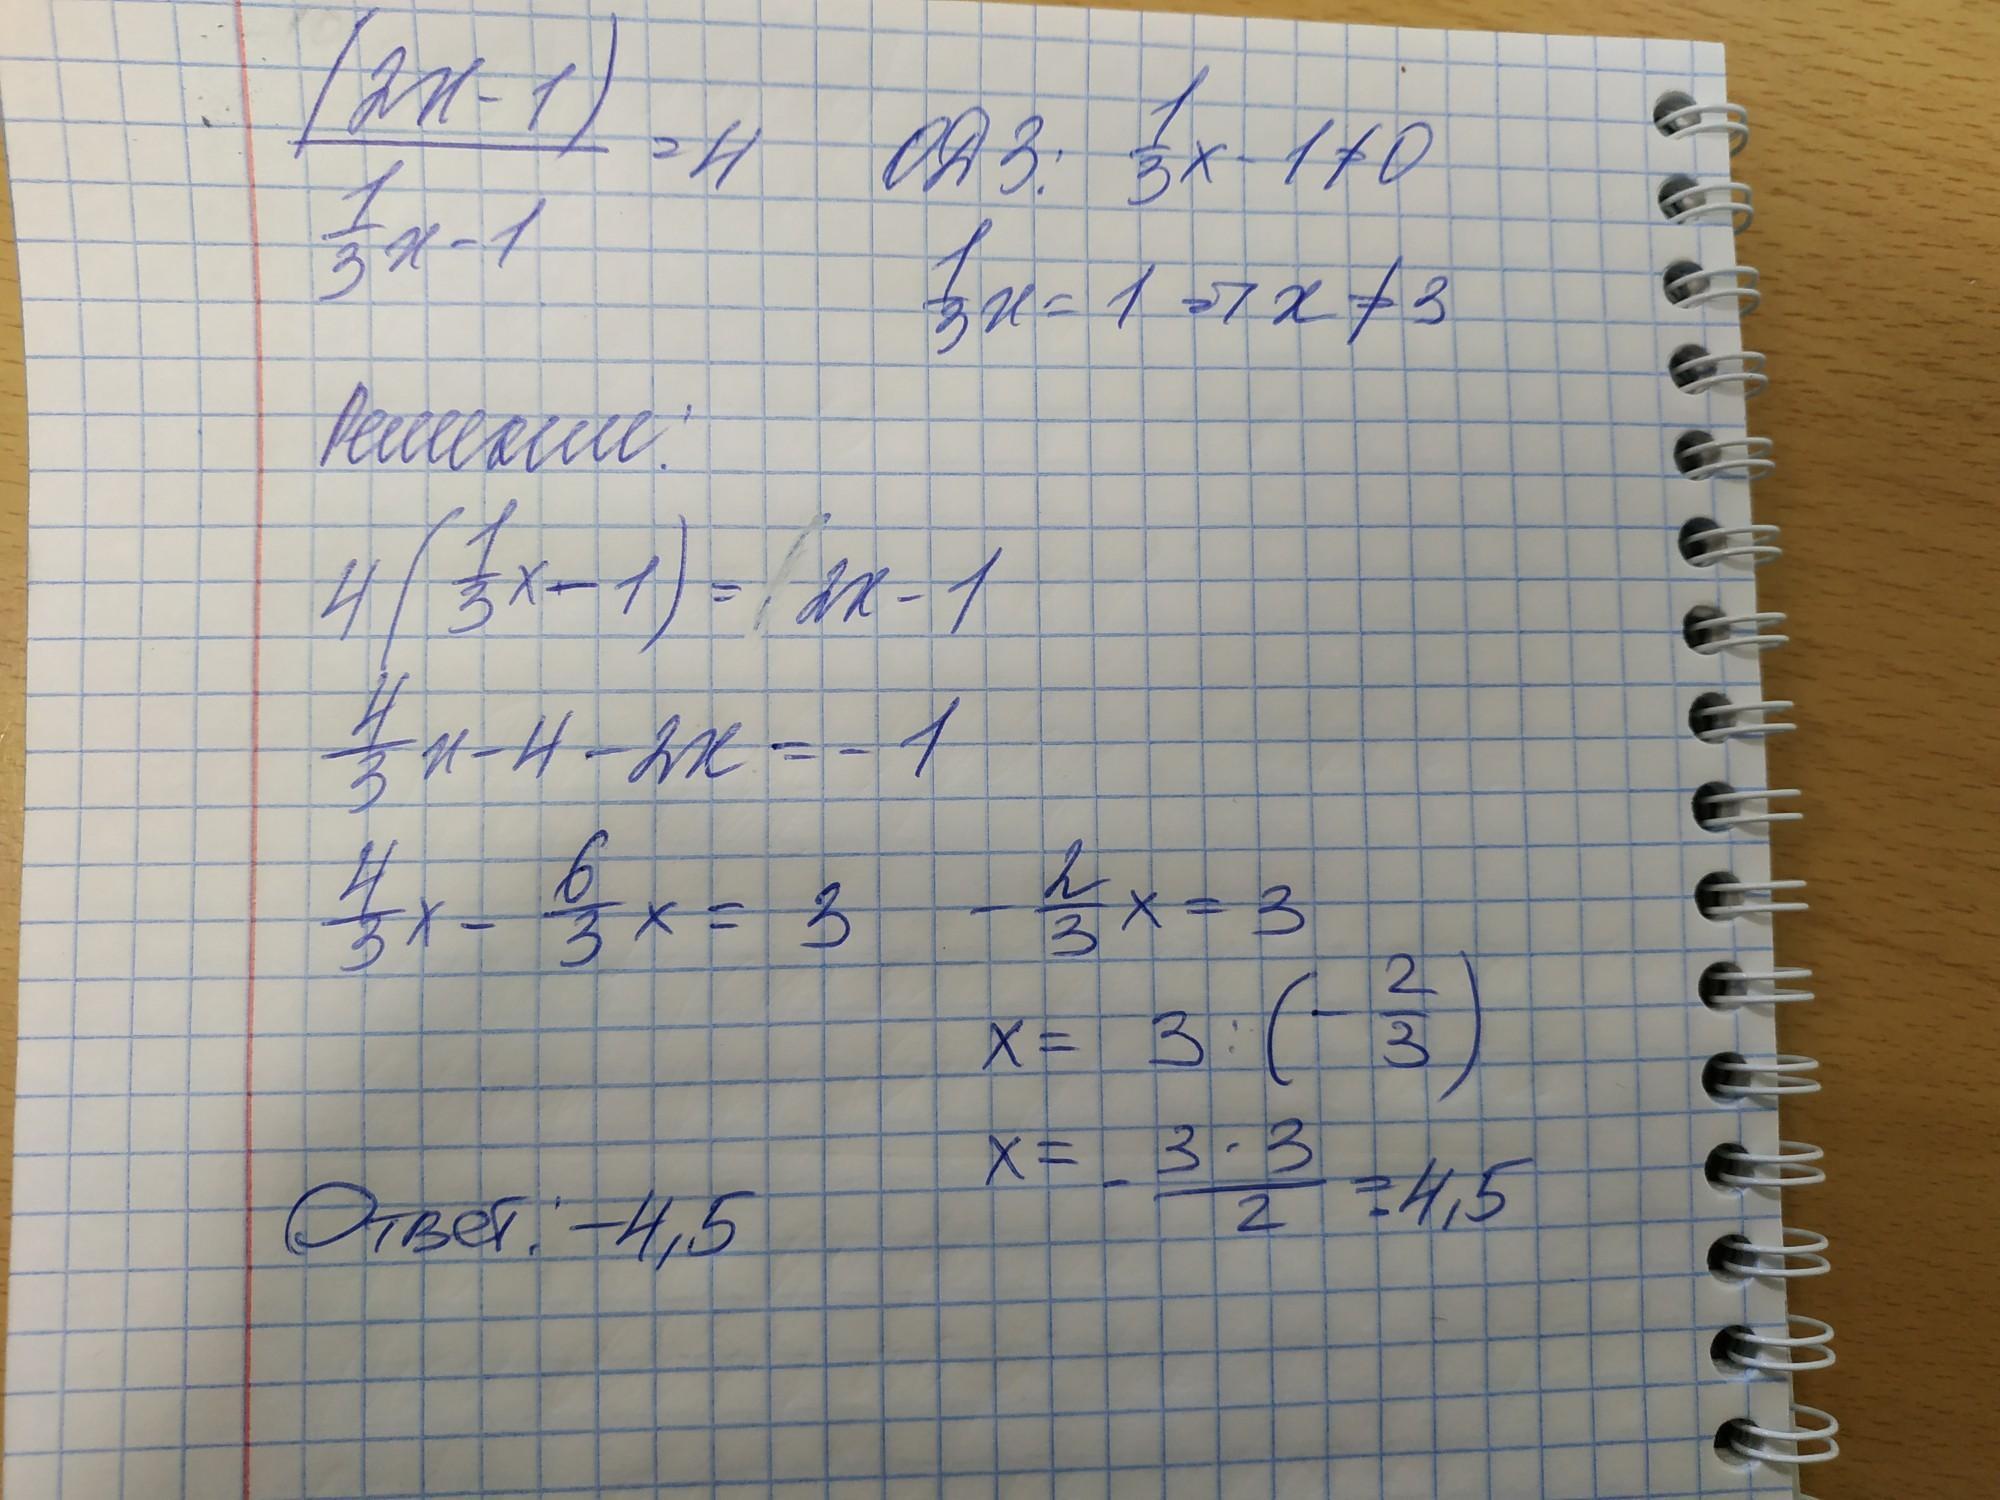 (2x-1)/(1/3 x-1) =4
ОДЗ: 1/3 x-1≠0
1/3 x=1 => x≠3
Решение:
4(1/3 x-1)=2x-1
4/3 x-4-2x=-1
4/3 x-6/3 x=3
-2/3 x=3
x=3:(-2/3)
x=-3·3/2=4,5
Ответ: -4,5